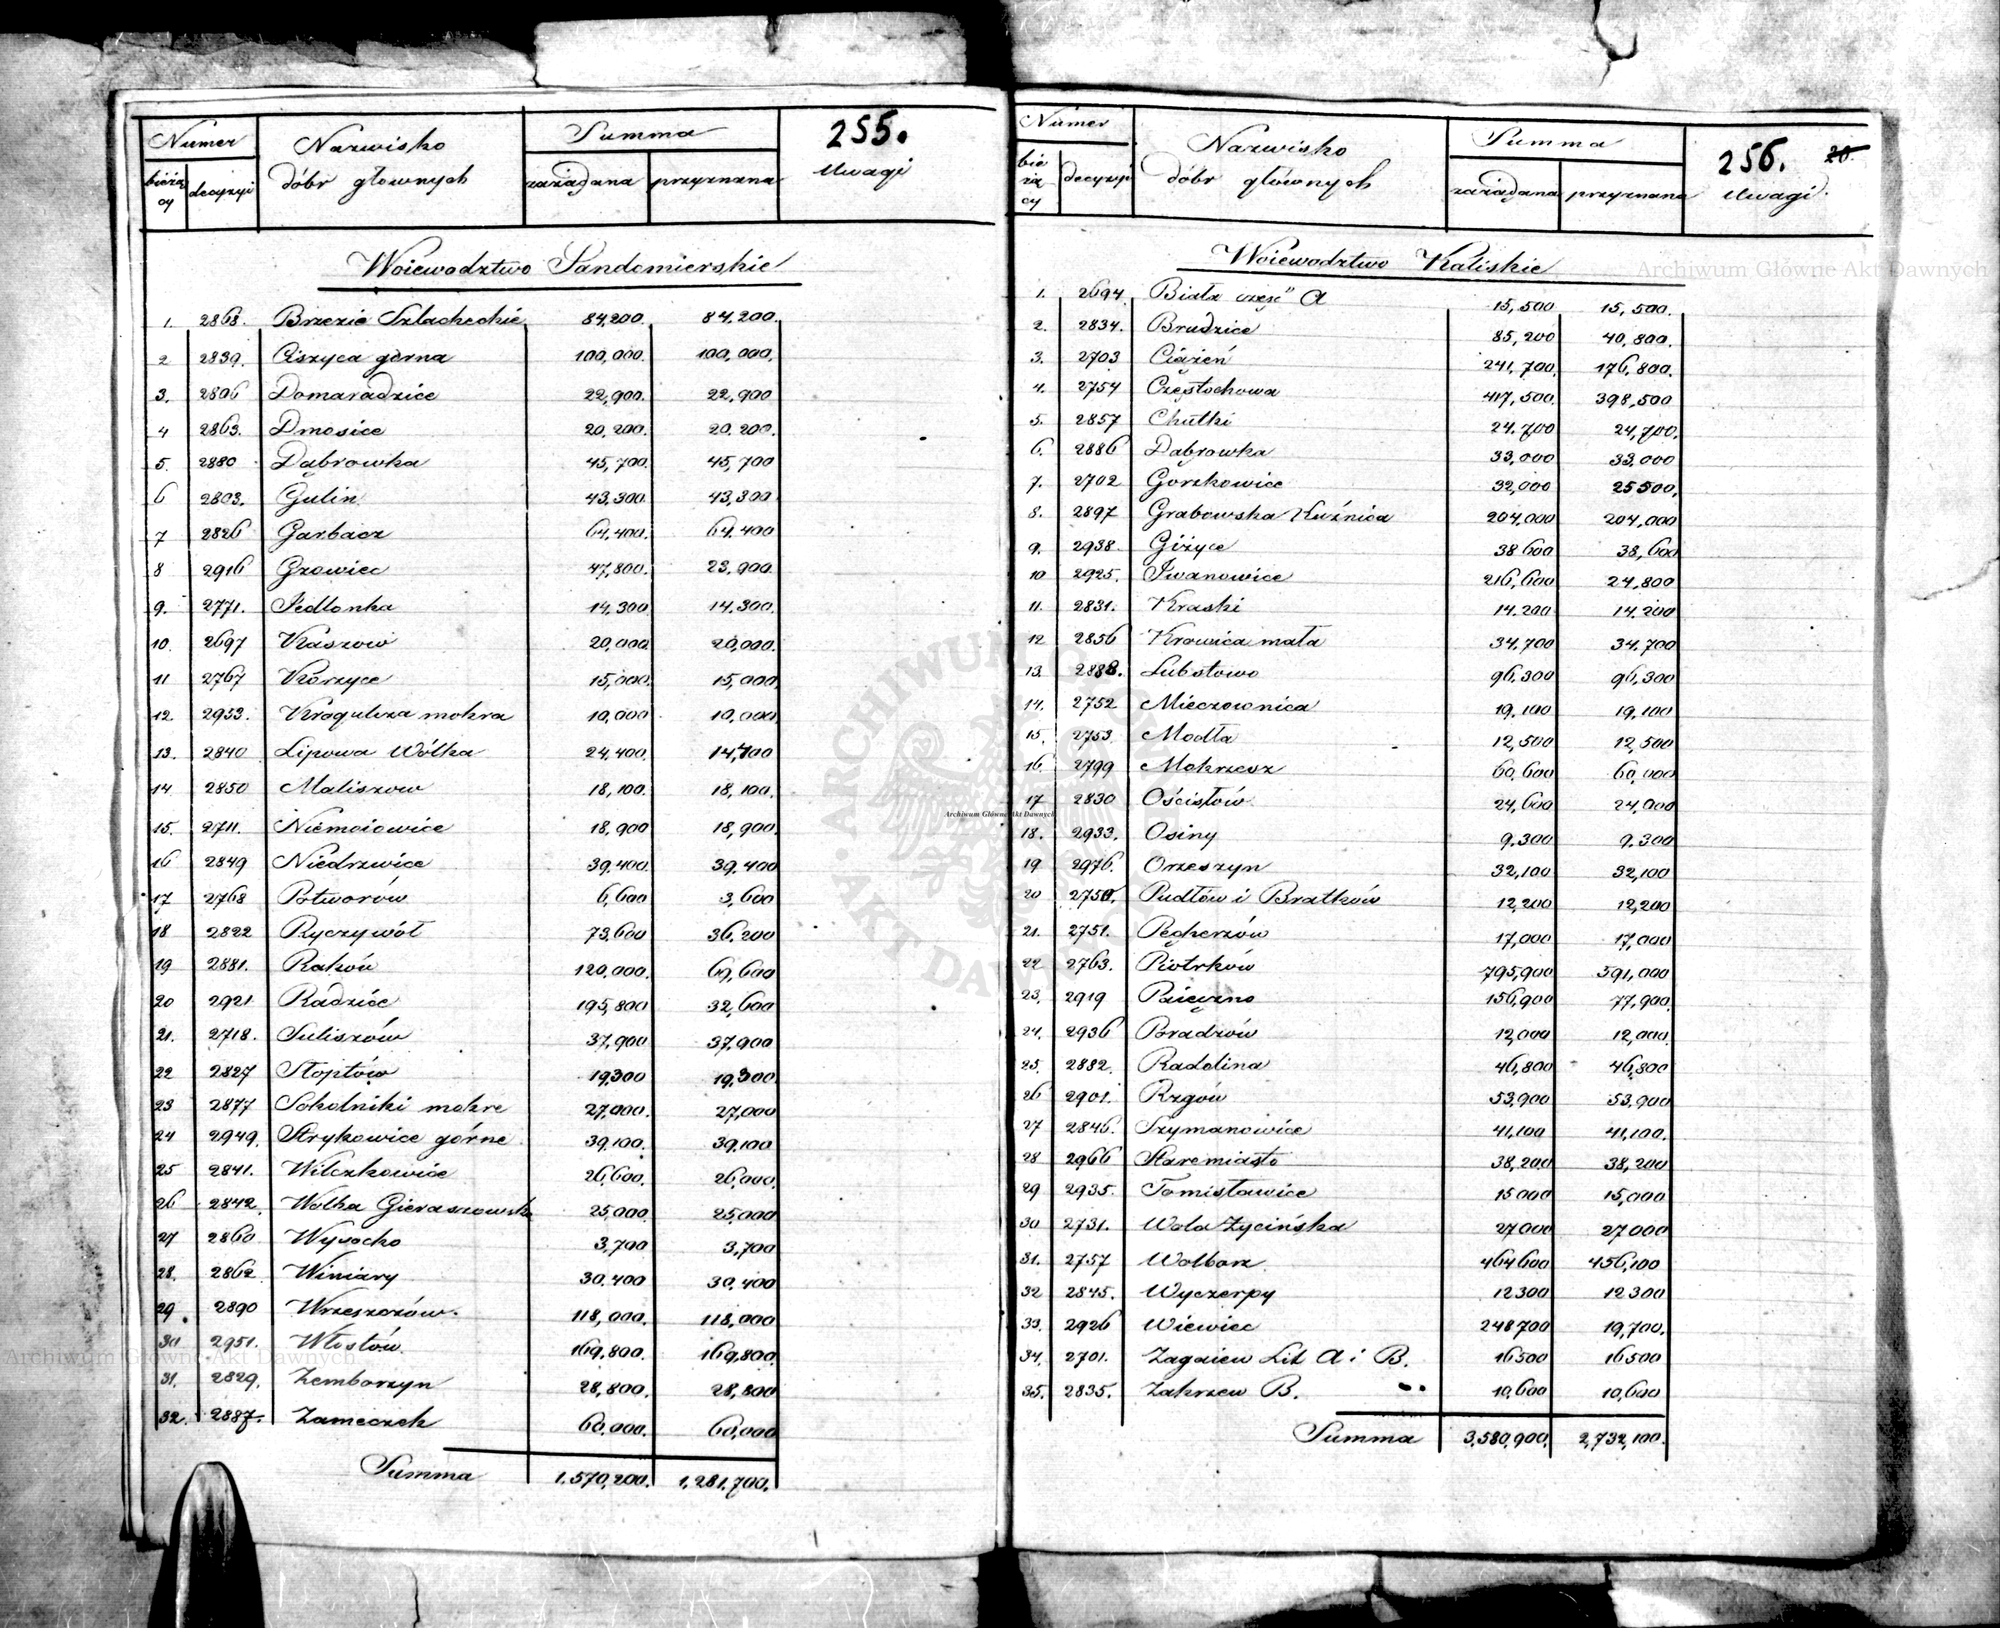 Numer Nazwisko Summa 255.
bieżą decyzyi dóbr głównych zażądana przyznana Uwagi
cy
Woiewodztwo Sandomierskie
1. 2868. Brzezie Szlacheckie 84,200. 84,200.
2 2839. Ciszyca górna 100,000. 100,000.
3. 2806 Domaradzice 22,900. 22,900
4 2863. Dmosice 20,200. 20,200.
5. 2880 Dąbrowka 45,700. 45,700
6 2803. Gulin 43,300. 43,300
7 2826 Garbacz 64,400. 64,400
8 2916 Gzowiec 47,800. 23,900.
9. 2771. Jedlonka 14,300 14,300.
10. 2697 Kaszow 20,000. 20,000.
11 2767 Korzyce 15,000. 15,000.
12. 2933. Kroguloza mokra 10,000 10,000
13. 2840 Lipowa Wólka 24,400. 14,700
14 2850 Maliszow 18,100. 18,100.
15. 2711. Niemoiowice 18,900 18,900.
16 2849 Niedrzwice 39,400. 39,400
17 2768 Potworów 6,600 3,600
18 2822 Ryczywół 73,600 36,200
19 2881. Raków 120,000. 60,600
20 2921 Radzice 195,800 32,600
21. 2718. Suliszów 37,900 37,900
22 2827 Stoptów 19,300 19,300.
23 2877 Sokolniki mokre 27,000. 27,000
24 2949. Strykowice górne 39,100. 39,100
25 2841. Wilczkowice 26,600. 26,000.
26 2842. Wolka Gieraszowska 25,000. 25,000
27 2860 Wysocko 3,700 3,700
28. 2862 Winiary 30,400 30,400
29 2890 Wrzeszozów. 118,000. 118,000
30 2951. Włostów 169,800. 169,800
31. 2829. Zemborzyn 28,800. 28,800
32. 2887. Zameczek 60,000. 60,000
Summa 1,570,200. 1,281,700.
Numer Nazwisko Summa 256. 20.
bie decyzyi dóbr głównych zażądana przyznana Uwagi.
żą
cy
Woiewodztwo Kaliskie
1. 2694. Biała część A 15,500 15,500.
2. 2834. Brudzice 85,200 40,800.
3. 2703 Ciążeń 241,700. 176,800.
4. 2754 Częstochowa 417,500. 398,500
5. 2857 Chutki 24,700 24,700.
6. 2886 Dąbrowka 33,000 33,000
7. 2702 Gorzkowice 32,000 25500.
8. 2897 Grabowska Kuźnica 204,000 204,000
9. 2938. Giżyce 38600 38,600
10 2925. Iwanowice 216,600 24,800
11. 2831. Kraski 14.200 14.200
12 2856 Krowica mała 34,700 34,700
13. 2888. Lubstowo 96,300 96,300
14. 2752 Mieczownica 19,100 19,100
15. 2753 Modła 12,500 12,500
16. 2799 Mokrzesz 60,600 60,000
17 2830 Ościsłów 24,600 24,000
18. 2933. Osiny 9.300 9.300
19 2976. Orzeszyn 32,100 32,100
20 2750. Pudłów i Bratków 12,200 12,200
21. 2751. Pęgherzów 17,000 17,000
22 2763. Piotrków 795,900 591,000
23. 2919 Paięczno 156,900 77,900.
24. 2936 Poradzów 12,000 12,000
25. 2882. Radolina 46,800 46,800
26 2901. Rzgów 53,900 53,900
27 2846. Szymanowice 41,100 41,100.
28 2966 Staremiasto 38,200 38,200
29 2935. Tomisławice 15000 15,000
30 2731. Wola Życińska 27000 27000
31. 2757 Wolborz 464600 456,100
32 2845. Wyczerpy 12300 12300
33. 2926 Wiewiec 248700 19,700.
34. 2701. Zagaiew Lit A i B. 16500 16500
35. 2835. Zakrzew B. 10,600 10,600
Summa 3,580,900. 2,732,100.
Archiwum Główne Akt Dawnych
Archiwum Główne Akt Dawnych
Archiwum Główne Akt Dawnych